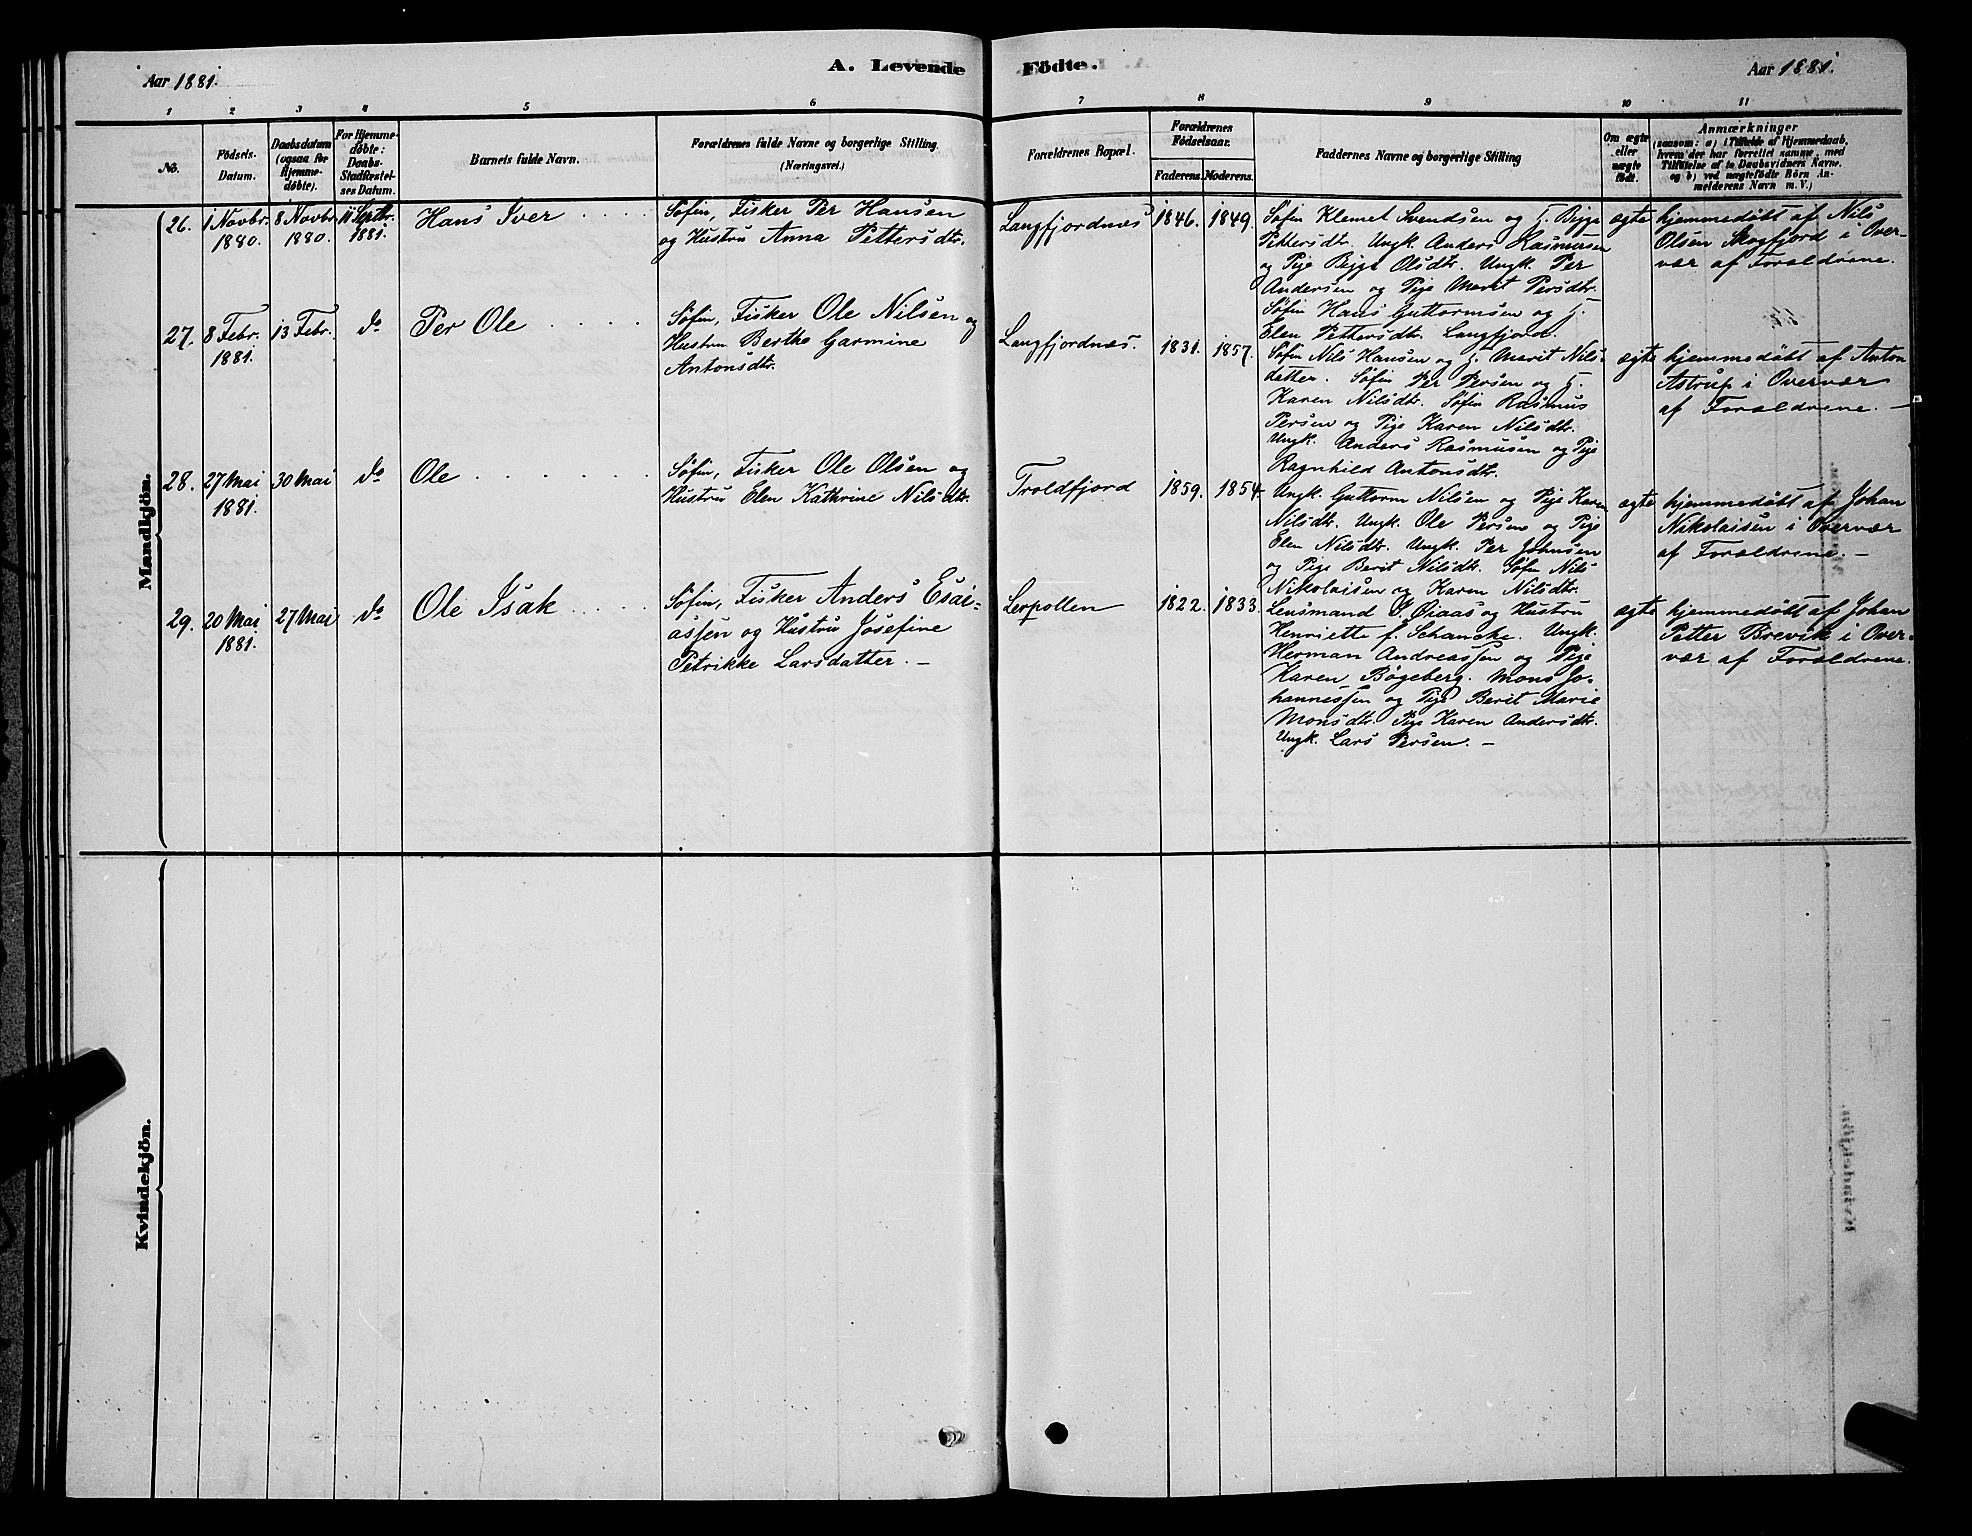 Aar 1881.
A. Levende Födte.
Aar 1881.
1 2 3 4 5 6 7 8 9 10 11
No.
Födsels-
Datum.
Daabsdatum
(ogsaa for
Hjemme-
döbte).
For Hjemme-
döbte:
Daabs-
Stadfæstel-
ses Datum.
Barnets fulde Navn.
Forældrenes fulde Navne og borgerlige Stilling
(Næringsvei.)
Forældrenes Bopæl.
Forældrenes
Födselsaar.
Faderens. Moderens.
Faddernes Navne og borgerlige Stilling
Om ægte
eller
uægte
födt.
Anmærkninger
(saasom: a) i Tilfælde af Hjemmedaab,
hvem der har forrettet samme, med
Tilföielse af to Daabsvidners Navne,
og b) ved uægtefödte Börn An-
melderens Navn m. V.)
Mandkjön.
26. 1 Novbr.
1880.
8 Novbr
1880.
11 Septbr.
1881.
Hans Iver
Søfin, Fisker Per Hansen
og Hustru Anna Pettersdtr.
Langfjordnæs 1846. 1849.
Søfin Klemet Svendsen og H. Bigge
Pettersdtr. Ungk. Anders Rasmussen
og Pige Bigge Olsdtr. Ungk. Per
Andersen og Pige Marit Persdtr.
ægte
hjemmedøbt af Nils
Olsen Skogfjord i Over-
vær af Forældrene.
27. 8 Febr.
1881.
13 Febr. do
Per Ole
Søfin, Fisker Ole Nilsen og
Hustru Berthe Garmine
Antonsdtr.
Langfjordnæs. 1831. 1857.
Søfin Hans Guttormsen og H.
Elen Pettersdtr. Langfjord.
Søfin Nils Hansen og H. Marit Nils-
datter. Søfin Per Persen og H.
Karen Nilsdtr. Søfin Rasmus
Persen og Pige Karen Nilsdtr.
Ungk. Anders Rasmusen og Pige
Ragnhild Antonsdtr.
ægte
hjemmedøbt af Anton
Astrup i Overvær
af Forældrene. —
28. 27 Mai
1881.
30 Mai do
Ole
Søfin, Fisker Ole Olsen og
Hustru Elen Kathrine Nilsdtr.
Troldfjord 1859. 1854
Ungk. Guttorm Nilsen og Pige Karen
Nilsdtr. Ungk. Ole Persen og Pige
Elen Nilsdtr. Ungk. Per Johnsen
og Pige Berit Nilsdtr. Søfin Nils
Nikolaisen og Karen Nilsdtr.
ægte
hjemmedøbt af Johan
Nikolaisen i Overvær
af Forældrene. —
29. 20 Mai
1881.
27 Mai do
Ole Isak
Søfin, Fisker Anders Esai-
assen og Hustru Josefine
Petrikke Larsdatter. —
Lerpollen 1822. 1833.
Lensmand Øiaas og Hustru
Henriette f. Schancke. Ungk.
Herman Andreassen og Pige
Karen Bøgeberg. Mons Jo-
hannessen og Pige Berit Marie
Monsdtr. Pige Karen Andersdtr.
Ungk. Lars Persen. —
ægte
hjemmedøbt af Johan
Petter Brevik i Over-
vær af Forældrene.
Kvindekjön.